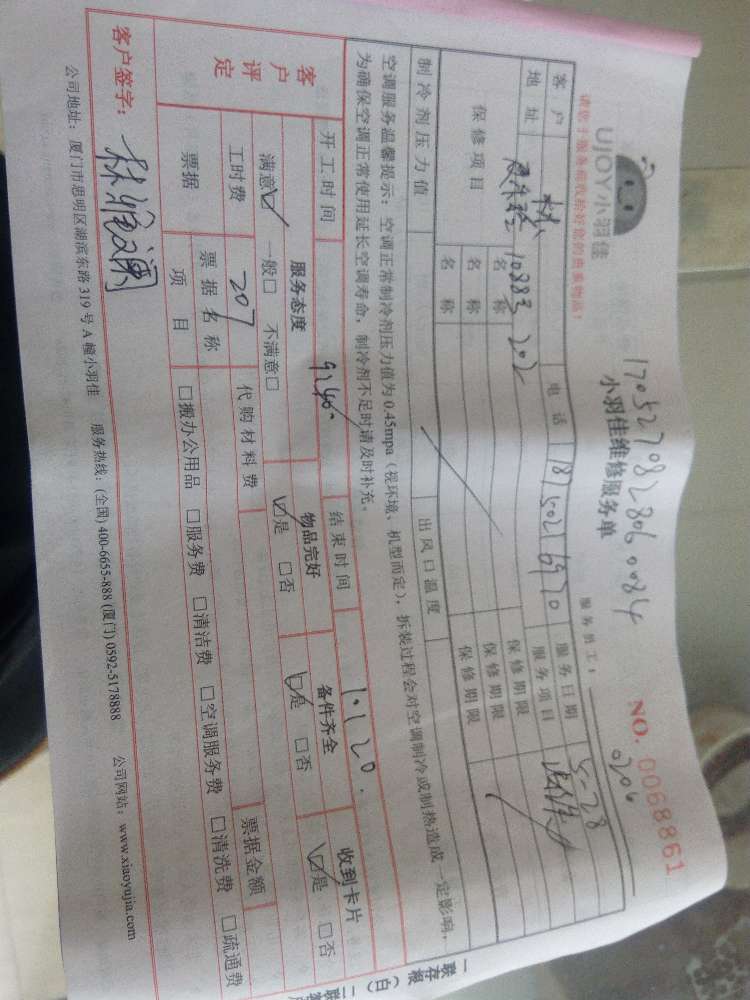 UJOY小羽佳
1705270828060084
小羽佳维修服务单
NO. 0068861
请您于服务前收拾好您的贵重物品!
服务员工: 0206
客户 林 电话 18750216970 服务日期 5-28
地址 1088号202 服务项目
保修项目 名称 保修期限
名称 保修期限
名称 保修期限
制冷剂压力值 出风口温度
空调服务温馨提示: 空调正常制冷剂压力值为 0.45mpa (视环境、机型而定), 拆装过程会对空调制冷或制热造成一定影响,
为确保空调正常使用延长空调寿命, 制冷剂不足时请及时补充。
开工时间 9:40 结束时间 10:20
客户评定 服务态度 物品完好 备件齐全 收到卡片
满意☑ 一般□ 不满意□ ☑是 □否 ☑是 □否 ☑是 □否
工时费 207 代购材料费 票据金额
票据 票据名称
项目 □搬办公用品 □服务费 □清洁费 □空调服务费 □清洗费 □疏通费
客户签字:
公司地址: 厦门市思明区湖滨东路 319 号 A 幢小羽佳 服务热线: (全国) 400-6655-888 (厦门) 0592-5178888 公司网站: www.xiaoyujia.com
一联存根 (白) 二联